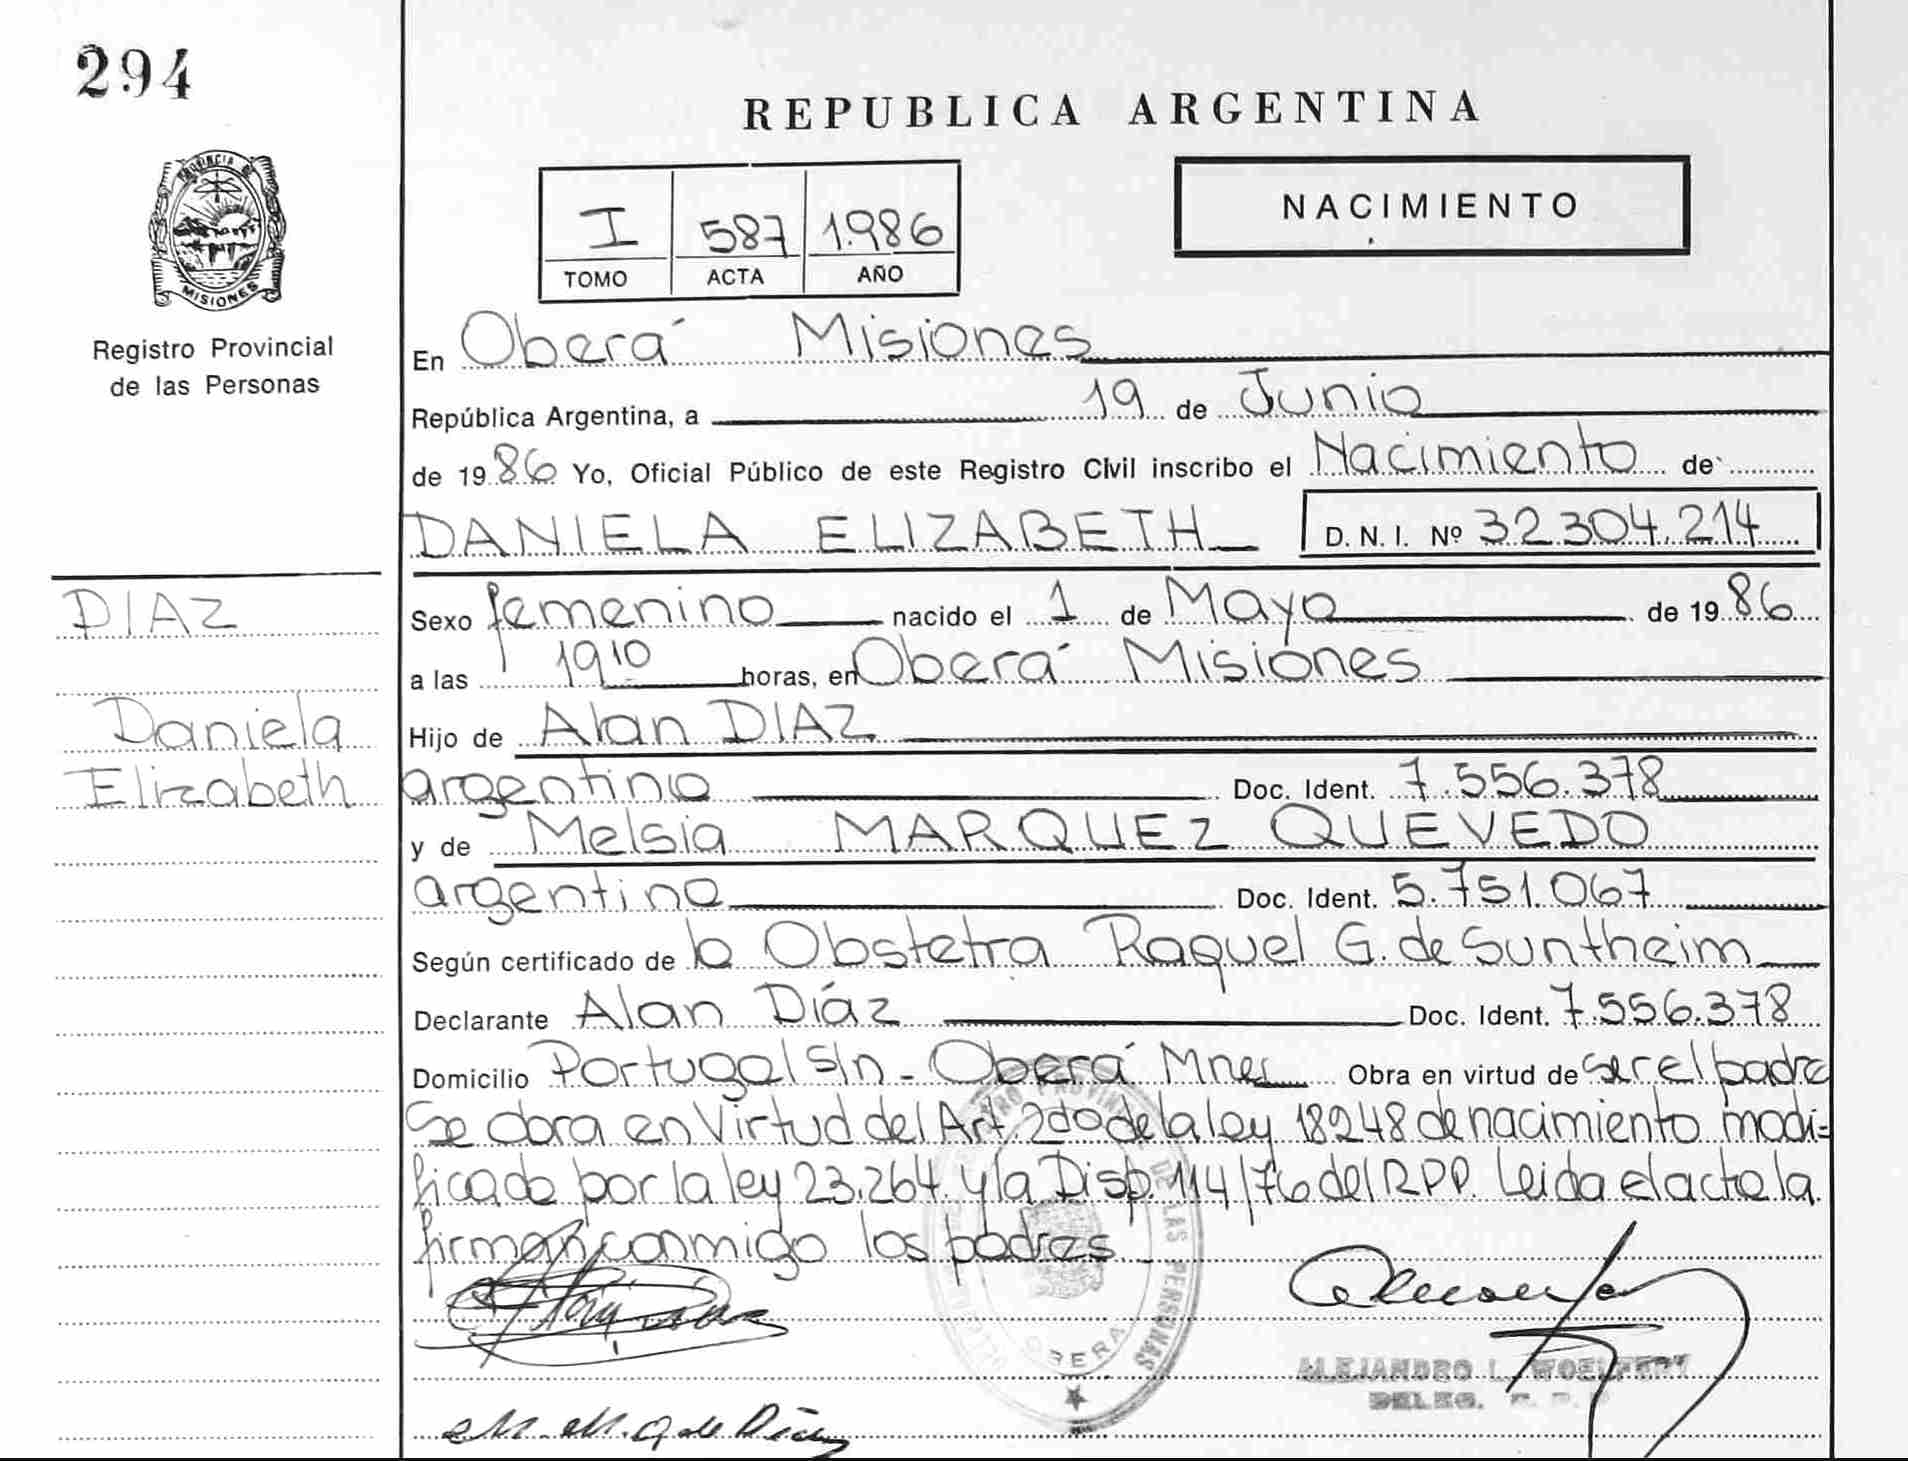 294
REPUBLICA ARGENTINA
PROVINCIA DE
MISIONES
Registro Provincial
de las Personas
I 587 1.986
TOMO ACTA AÑO
NACIMIENTO
En Oberá Misiones
República Argentina, a 19 de Junio
de 19 86 Yo, Oficial Público de este Registro Civil inscribo el Nacimiento de
DANIELA ELIZABETH D. N. I. Nº 32.304.214
DIAZ
Daniela
Elizabeth
Sexo femenino nacido el 1 de Mayo de 19 86
a las 19 10 horas, en Oberá Misiones
Hijo de Alan DIAZ
argentino Doc. Ident. 7.556.378
y de Melsia MARQUEZ QUEVEDO
argentina Doc. Ident. 5.751.067
Según certificado de la Obstetra Raquel G. de Suntheim
Declarante Alan Díaz Doc. Ident. 7.556.378
Domicilio Portugal S/n - Oberá Mnes Obra en virtud de ser el padre
Se obra en Virtud del Art. 2do de la ley 18248 de nacimiento modi=
ficado por la ley 23.264. y la Disp. 114/76 del RPP. Leida el acta la
firman conmigo los padres
OBERA
ALEJANDRO L. WOELFERT
DELEG.
M. M. Q de Díaz